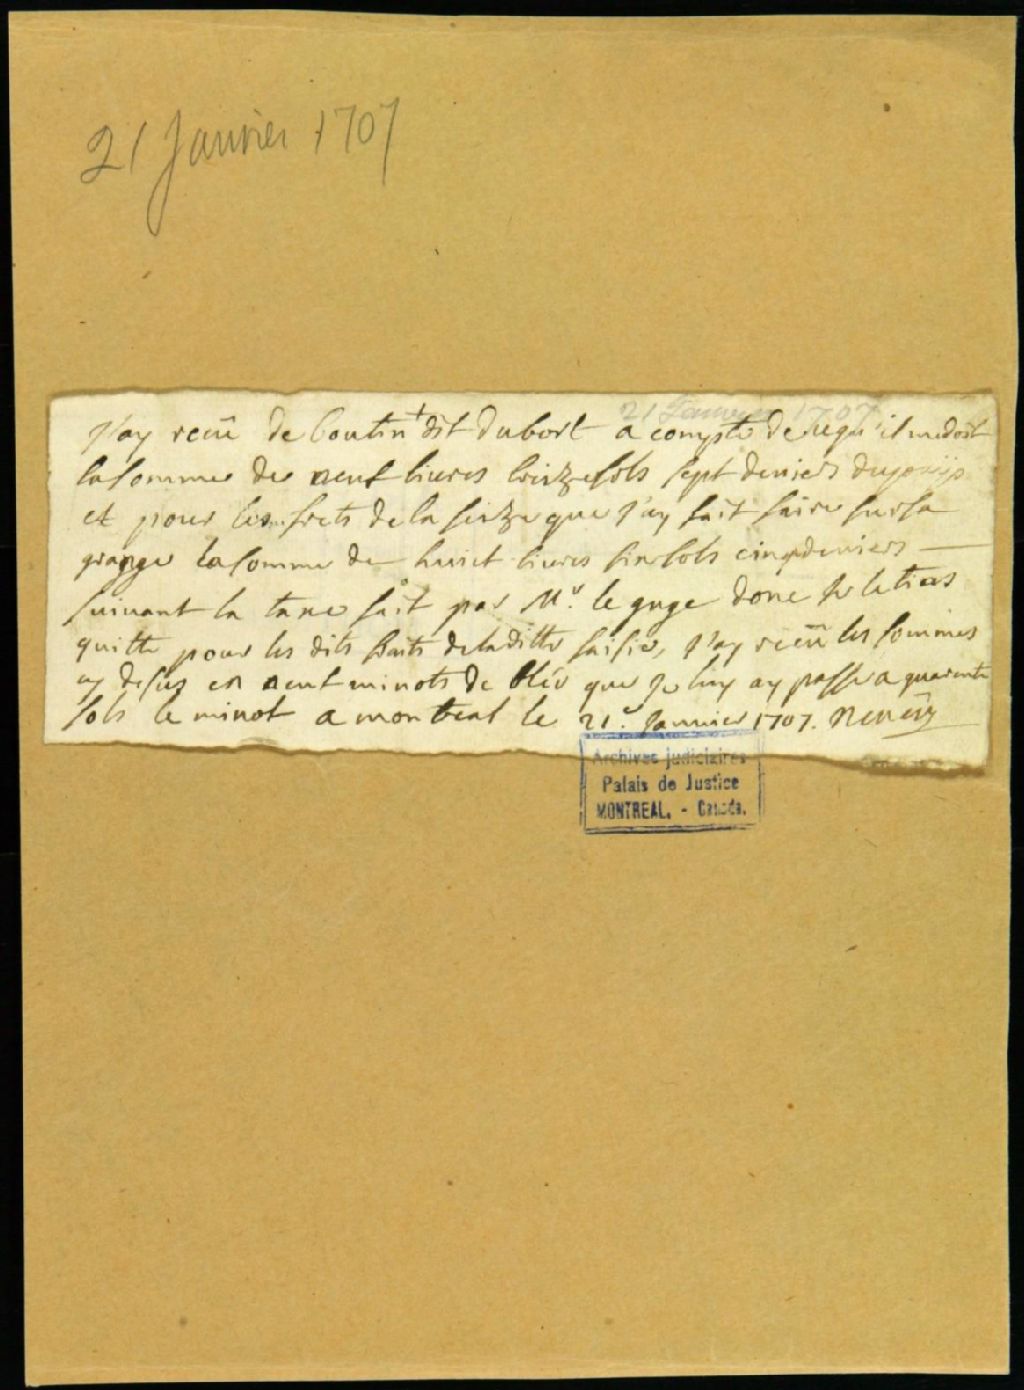 21 Janvier 1707
21 Janvier 1707
J'ay receu de boutin + dit dubort a compte de ce qu'il me doit
la somme de neuf livres treize sols sept deniers
et pour les frets de la seize que j'ay fait faire sur sa
grange la somme de huict livres six sols cinq deniers
suivant la taxe fait par Mr. le guge donc Je le tiens
quitte pour les dits fraits de la ditte saisie, J'ay receu les sommes
cy desus en neuf minots de bléd que Je luy ay passe a quarente
sols le minot a monreal le 21e. Janvier 1707.
Archives judiciaires
Palais de Justice
MONTREAL. - Canada.